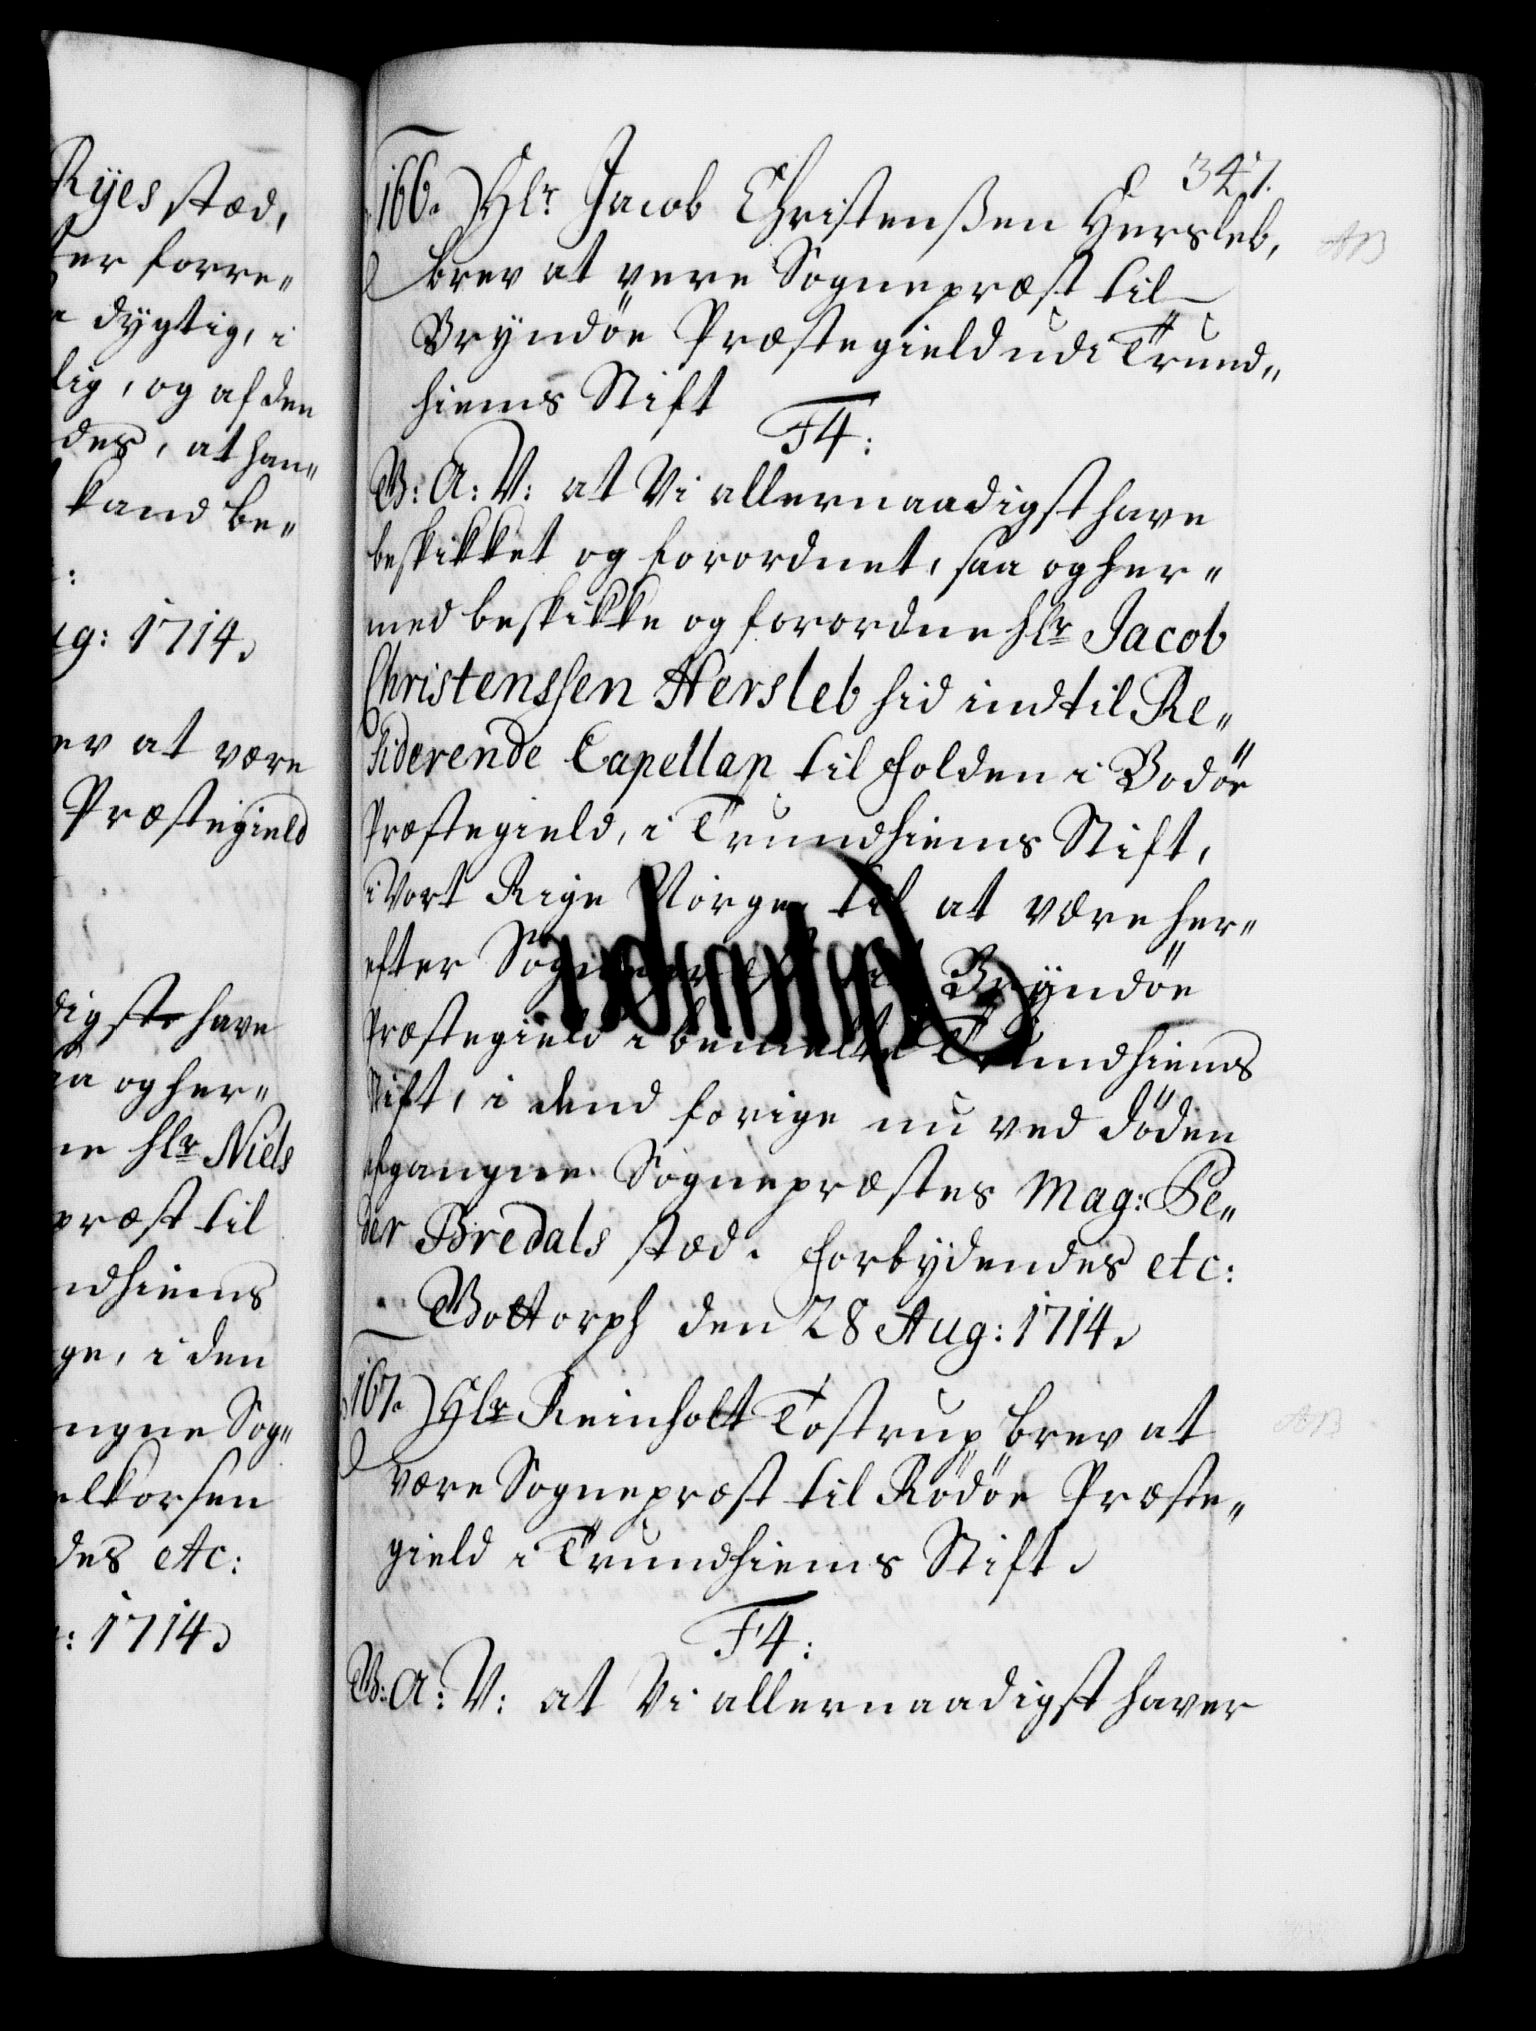 Ryes stæd,
er forre„
e dygtig, i
lig, og af den
des, at han„
kand be„
:
ug: 1714.
ev at være
Præstegield
digste have
aa og her„
ne Hlr Niels
præst til
ndhiems
ge, i den
ngne Sog„
elkorsen
des etc:
: 1714.
347.
166.) Hlr Jacob Christenßen Hersleb,
brev at være Sognepræst til
Bryndöe Præstegield udi Trund„
hiems Stift
F4:
G: A: V: at Vi allernaadigst have
beskikket og forordnet, saa og her„
med beskikke og forordne Hlr Jacob
Christenssen Hersleb hid indtil Re„
siderende Capellan til Folden i Bodöe
Præstegield, i Trundhiems Stift,
i Vort Rige Norge, til at være her„
efter Sognepræst til Bryndöe
Præstegield i bemelte Trundhiems
Stift, i dend forige nu ved döden
afgangne Sognepræstes Mag: Pe„
der Bredals stæd. Forbydendes etc:
Gottorph den 28 Aug: 1714.
167.) Hlr Reinholt Tostrup brev at
være Sognepræst til Rödöe Præste„
gield i Trundhiems Stift.
F4:
G: A: V: at Vi allernaadigst haver